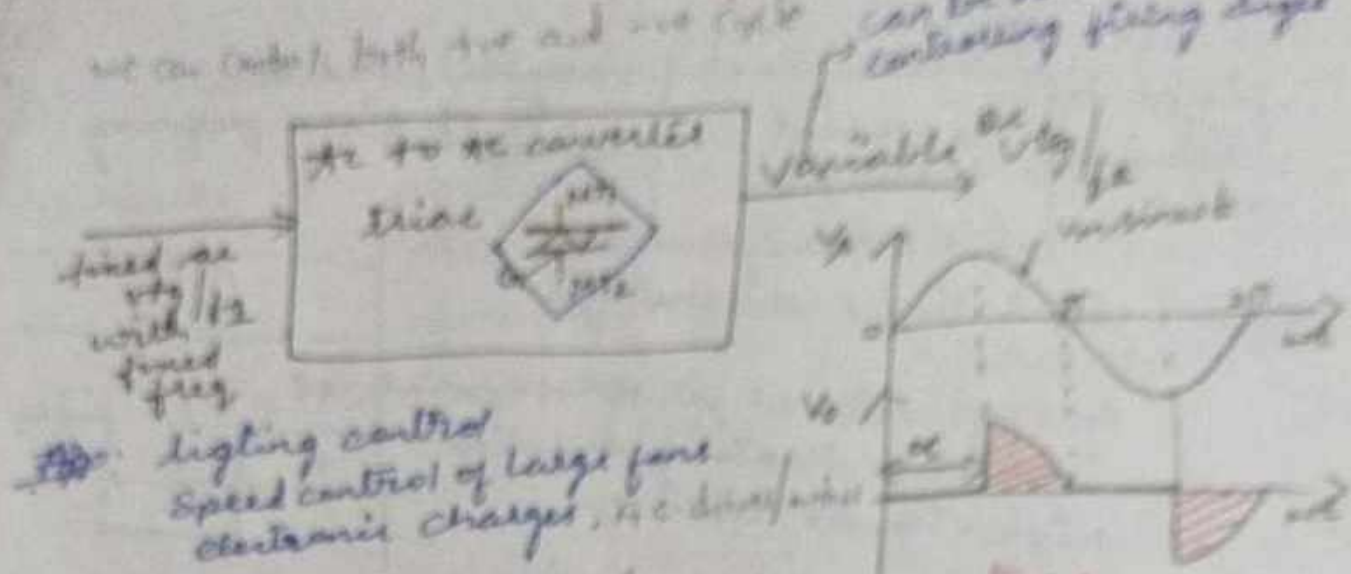 we can control both +ve and -ve cycle
can be
controlling firing angle
Ac to Ac converter
triac
MT1
G
MT2
variable ac vtg/fr
fixed ac
vtg/fq
with
fixed
freq
Vs
Vmsinωt
0
π
2π
ωt
Vo
α
ωt
App: ligting control
Speed control of large fans
electronic charges, Ac drives/